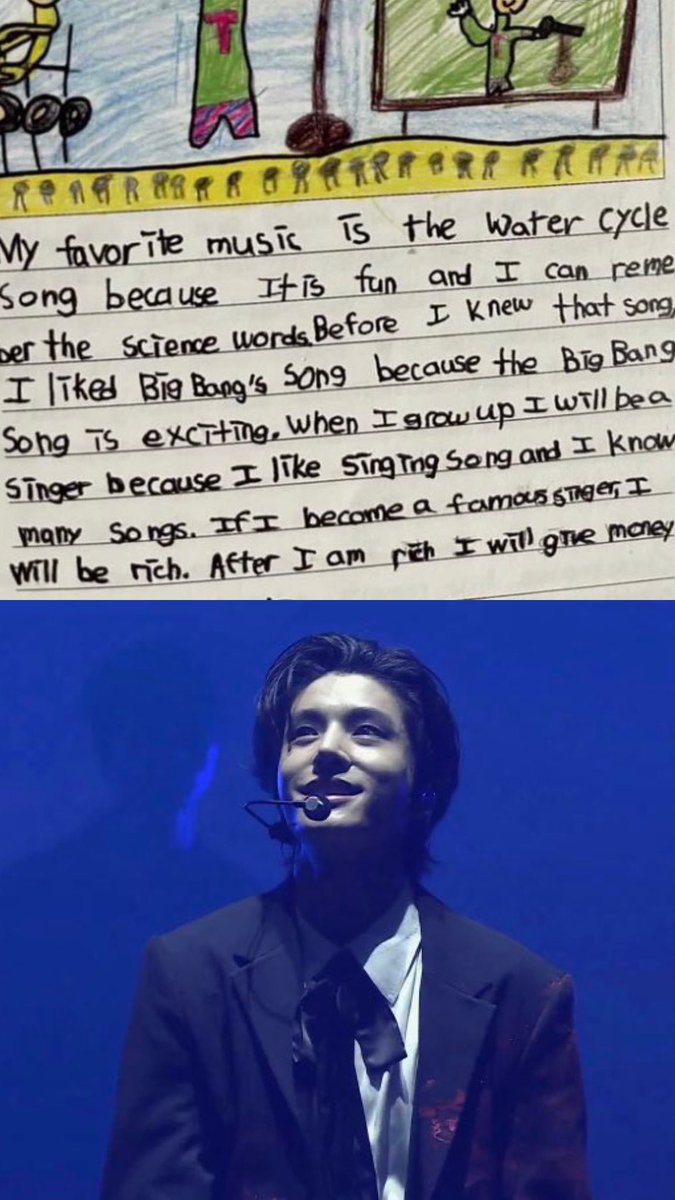 T
T
My favorite music is the Water cycle
Song because It is fun and I can reme
ber the science words. Before I knew that song,
I liked Big Bang's Song because the Big Bang
Song is exciting. When I grow up I will be a
singer because I like singing song and I know
many songs. If I become a famous singer, I
will be rich. After I am rich I will give money